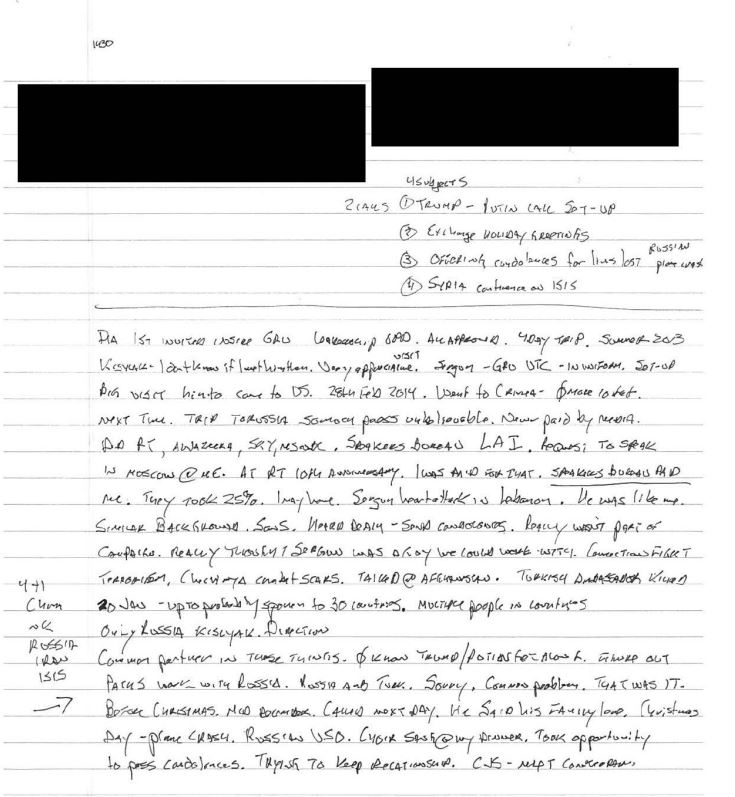 1430
4 Subjects
2 calls ① Trump - Putin call Set-up
② Exchange Holiday Greetings
Russian
③ Offering condolences for lives lost plane crash
④ Syria conference on ISIS
DIA 1st invited inside GRU All Approved. 4 day Trip. Summer 2013
Kislyak - I don't know if I met him then. Very appreciative. Sergun - GRU - in uniform. Set-up
visit
visit him to come to US. 28th Feb 2014. Went to Crimea -
Next Time. Trip to Russia unbelievable. Never paid by media.
Did RT, Al Jazeera, Sky, MSNBC. Speakers Bureau LAI. Request to speak
in Moscow @ ME. At RT 10th Anniversary. I was paid for that. Speakers Bureau paid
me. They took 25%. I may have. Sergun heart attack in Lebanon. He was like me.
Similar Background. Sons. Heard Death - send condolences. Really wasn't part of
campaign. Really thought Sergun was a guy we could work with. Connections Fight
Terrorism, Chechnya combat scars. Talked @ Afghanistan. Turkish Ambassador Killed
20 Jan - up to probably spoken to 30 countries. Multiple people in countries
Only Russia Kislyak. Direction
4+1
China
NK
Russia
Iran
ISIS
Common partner in these things. Know Trump/Putin Figure out
Paths work with Russia. Russia and Turk. Common problem. That was it.
Before Christmas. Mid December. Called next day. He said his Family love. Christmas
Day - plane crash. Russian USO. Choir Sang @ my Dinner. Took opportunity
to pass condolences. Trying to keep relationship.